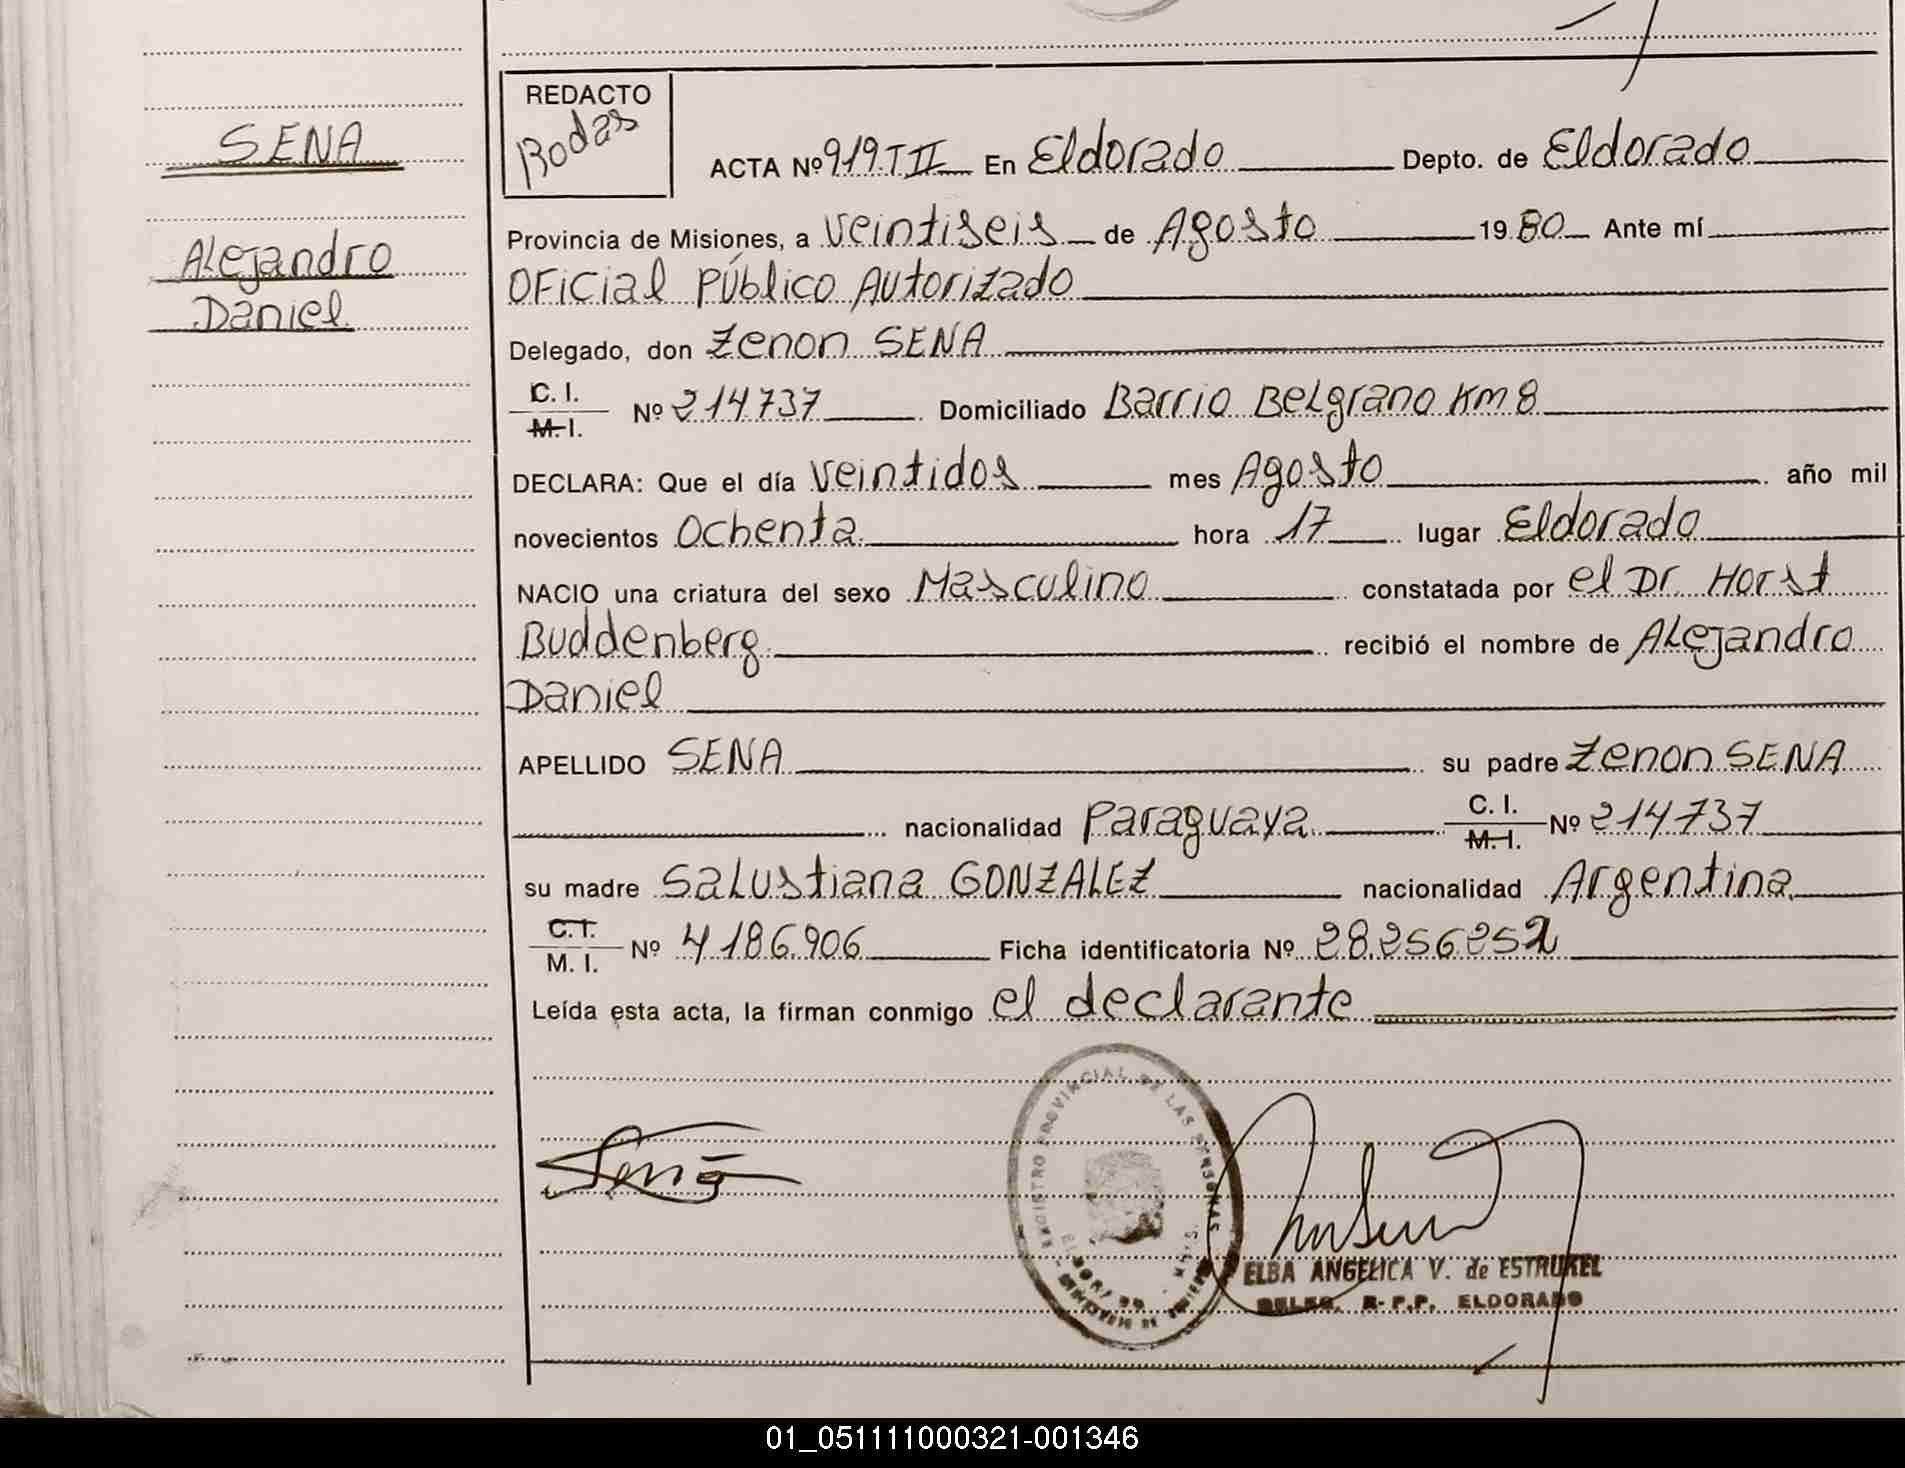 SENA
Alejandro
Daniel
REDACTO
Bodas
ACTA Nº 919.T II En Eldorado Depto. de Eldorado
Provincia de Misiones, a veintiseis de Agosto 19 80 Ante mí
Oficial Público Autorizado
Delegado, don Zenon SENA
C. I.
M. I. Nº 214.737 Domiciliado Barrio Belgrano Km 8
DECLARA: Que el día veintidos mes Agosto año mil
novecientos Ochenta hora 17 lugar Eldorado
NACIO una criatura del sexo Masculino constatada por el Dr. Horst
Buddenberg recibió el nombre de Alejandro
Daniel
APELLIDO SENA su padre Zenon SENA
nacionalidad Paraguaya C. I. M. I. Nº 214.737
su madre Salustiana GONZALEZ nacionalidad Argentina
C. I.
M. I. Nº 4.186.906 Ficha identificatoria Nº 28.256.252
Leída esta acta, la firman conmigo el declarante
REGISTRO PROVINCIAL DE LAS PERSONAS
ELDORADO
ELBA ANGELICA V. de ESTRUKEL
DELEG. R. P.P. ELDORADO
01_051111000321-001346